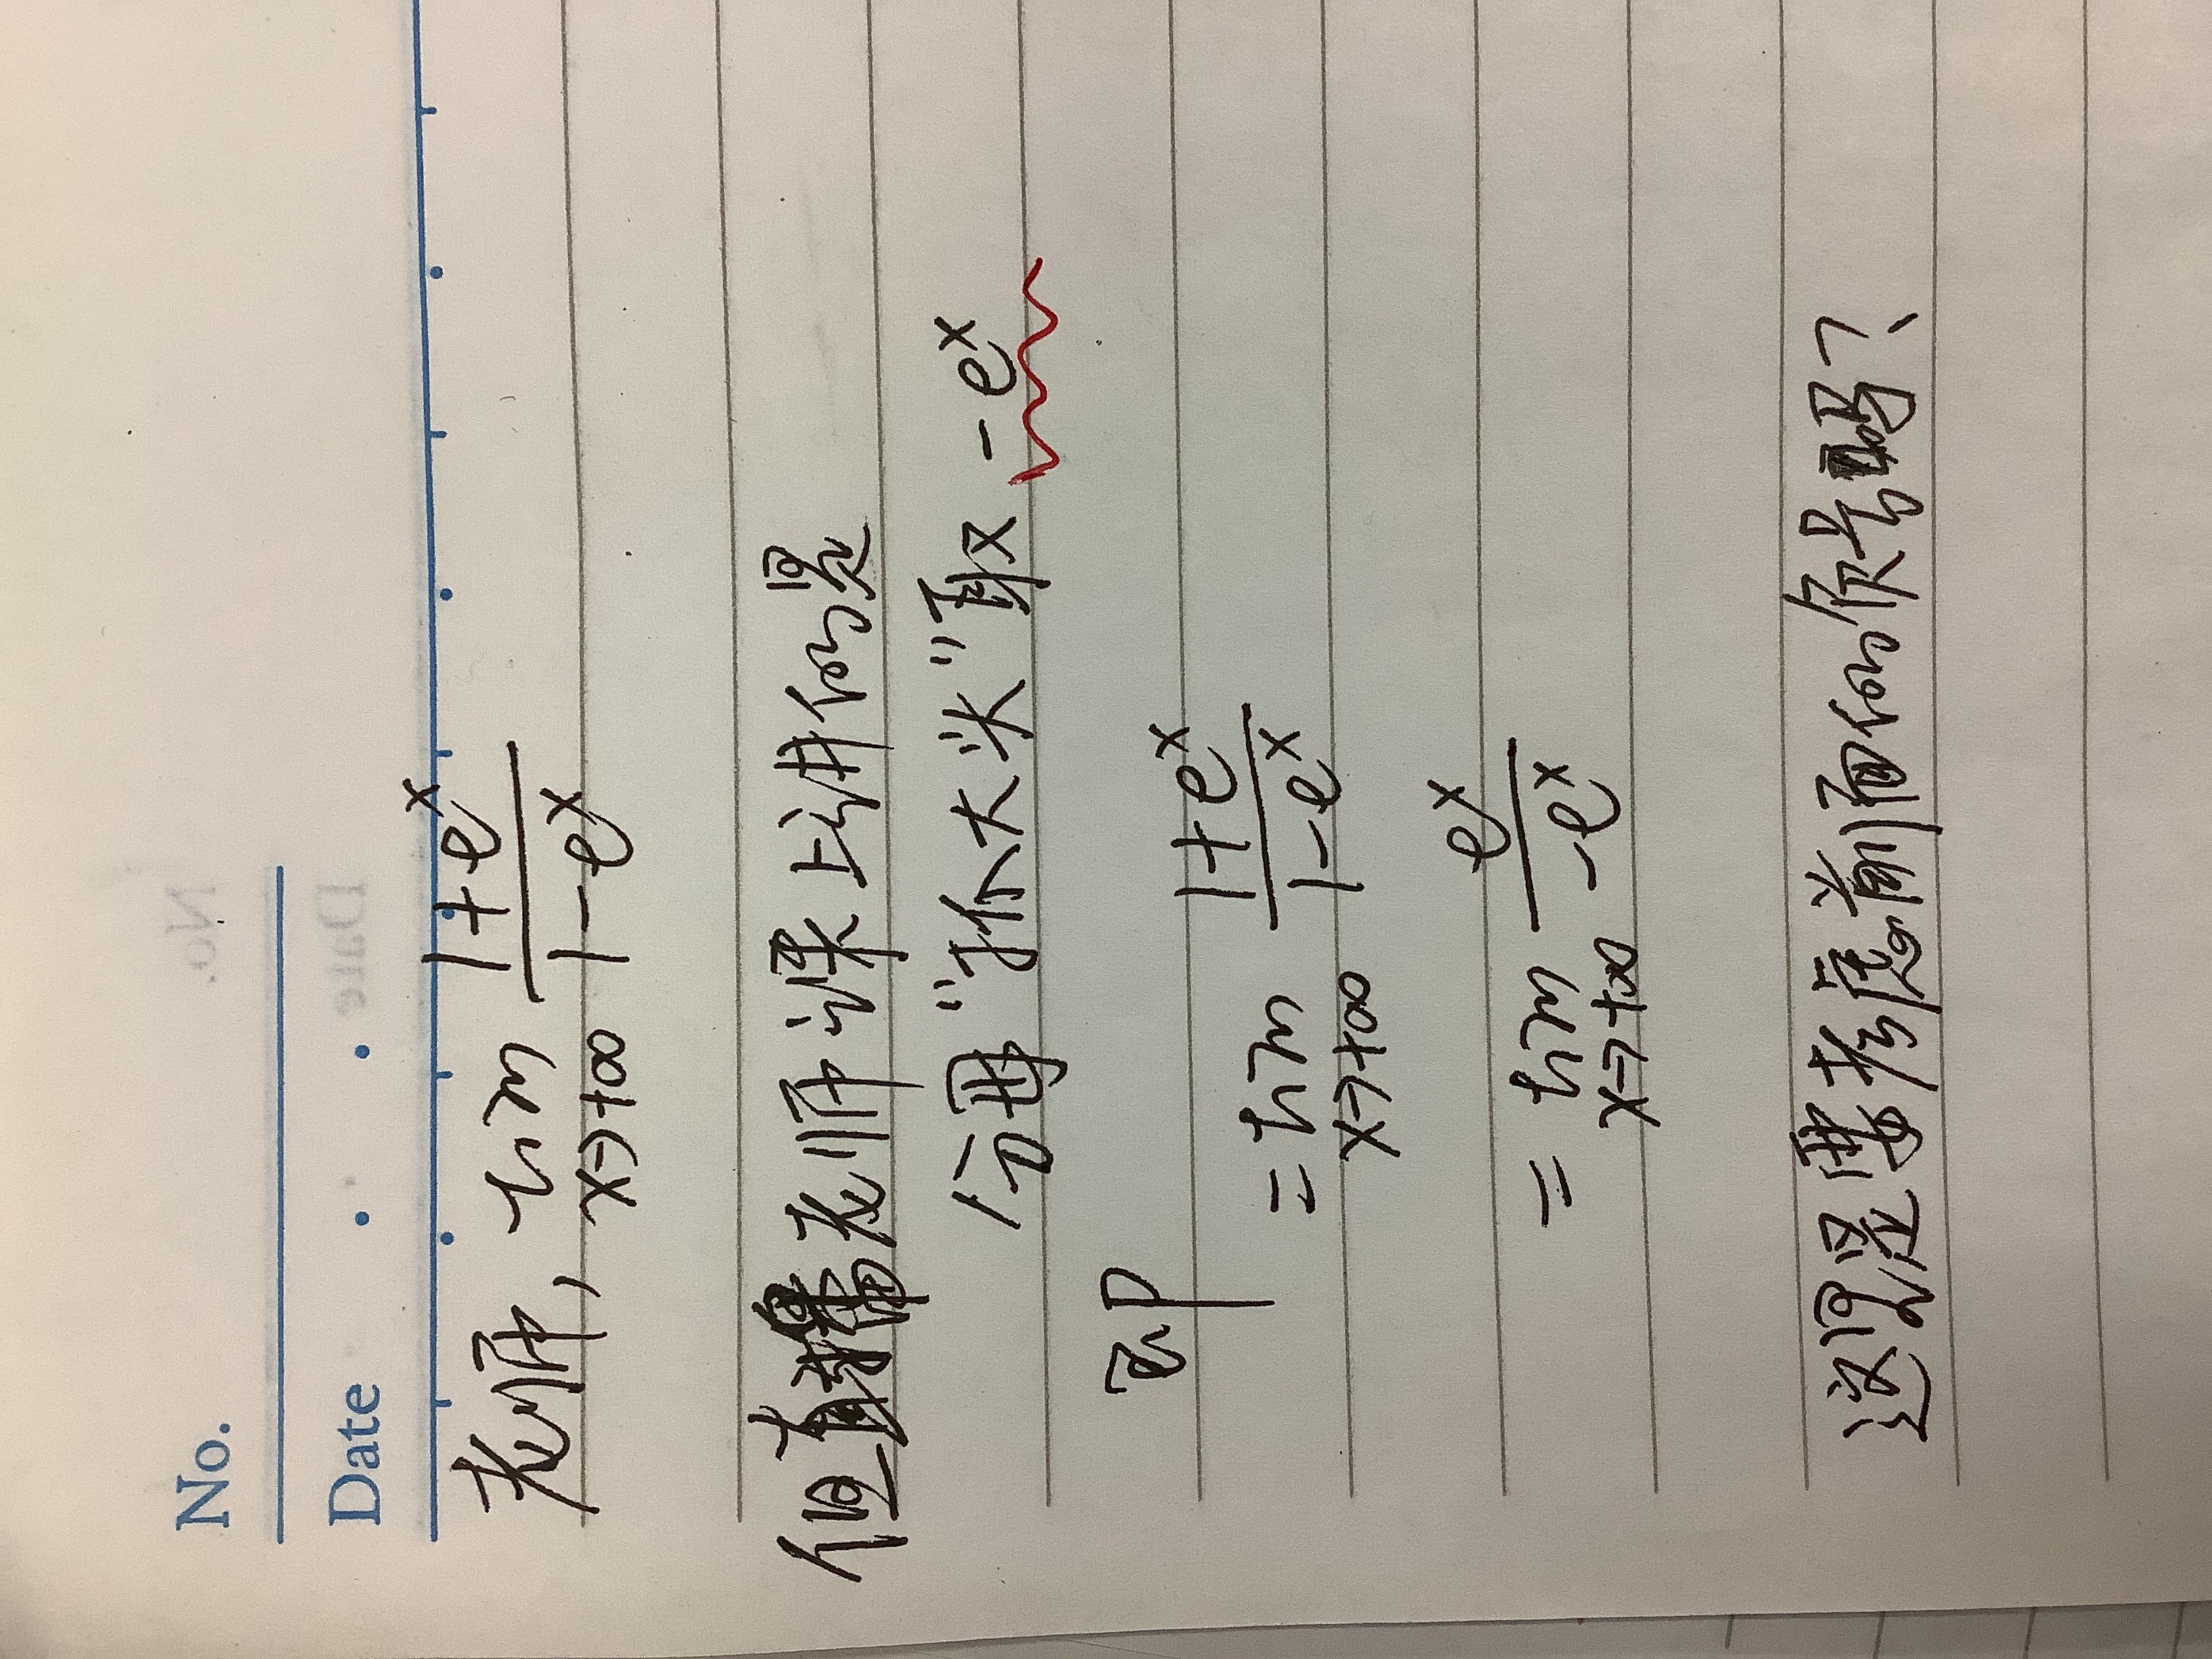 No.
Date
老师, lim x→+∞ (1+e^x)/(1-e^x)
但直播老师课上讲的是
分母“抓大头”取 -e^x
即
= lim x→+∞ (1+e^x)/(1-e^x)
= lim x→+∞ e^x/(-e^x)
这里是要考虑前面的负号吗?